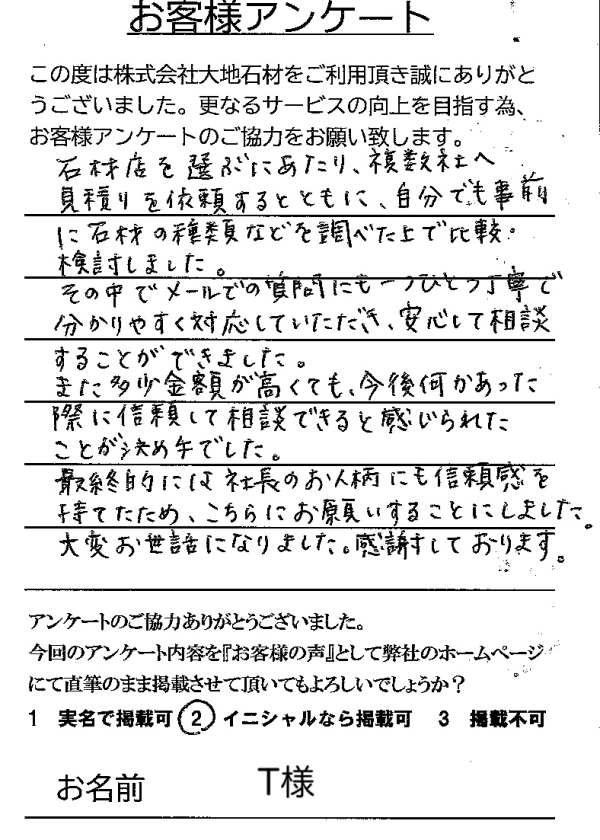 お客様アンケート
この度は株式会社大地石材をご利用頂き誠にありがと
うございました。更なるサービスの向上を目指す為、
お客様アンケートのご協力をお願い致します。
石材店を選ぶにあたり、複数社へ
見積りを依頼するとともに、自分でも事前
に石材の種類などを調べた上で比較・
検討しました。
その中でメールでの質問にも一つひとつ丁寧で
分かりやすく対応していただき、安心して相談
することができました。
また多少金額が高くても、今後何かあった
際に信頼して相談できると感じられた
ことが決め手でした。
最終的には社長のお人柄にも信頼感を
持てたため、こちらにお願いすることにしました。
大変お世話になりました。感謝しております。
アンケートのご協力ありがとうございました。
今回のアンケート内容を『お客様の声』として弊社のホームページ
にて直筆のまま掲載させて頂いてもよろしいでしょうか？
1 実名で掲載可 2 イニシャルなら掲載可 3 掲載不可
お名前 T様